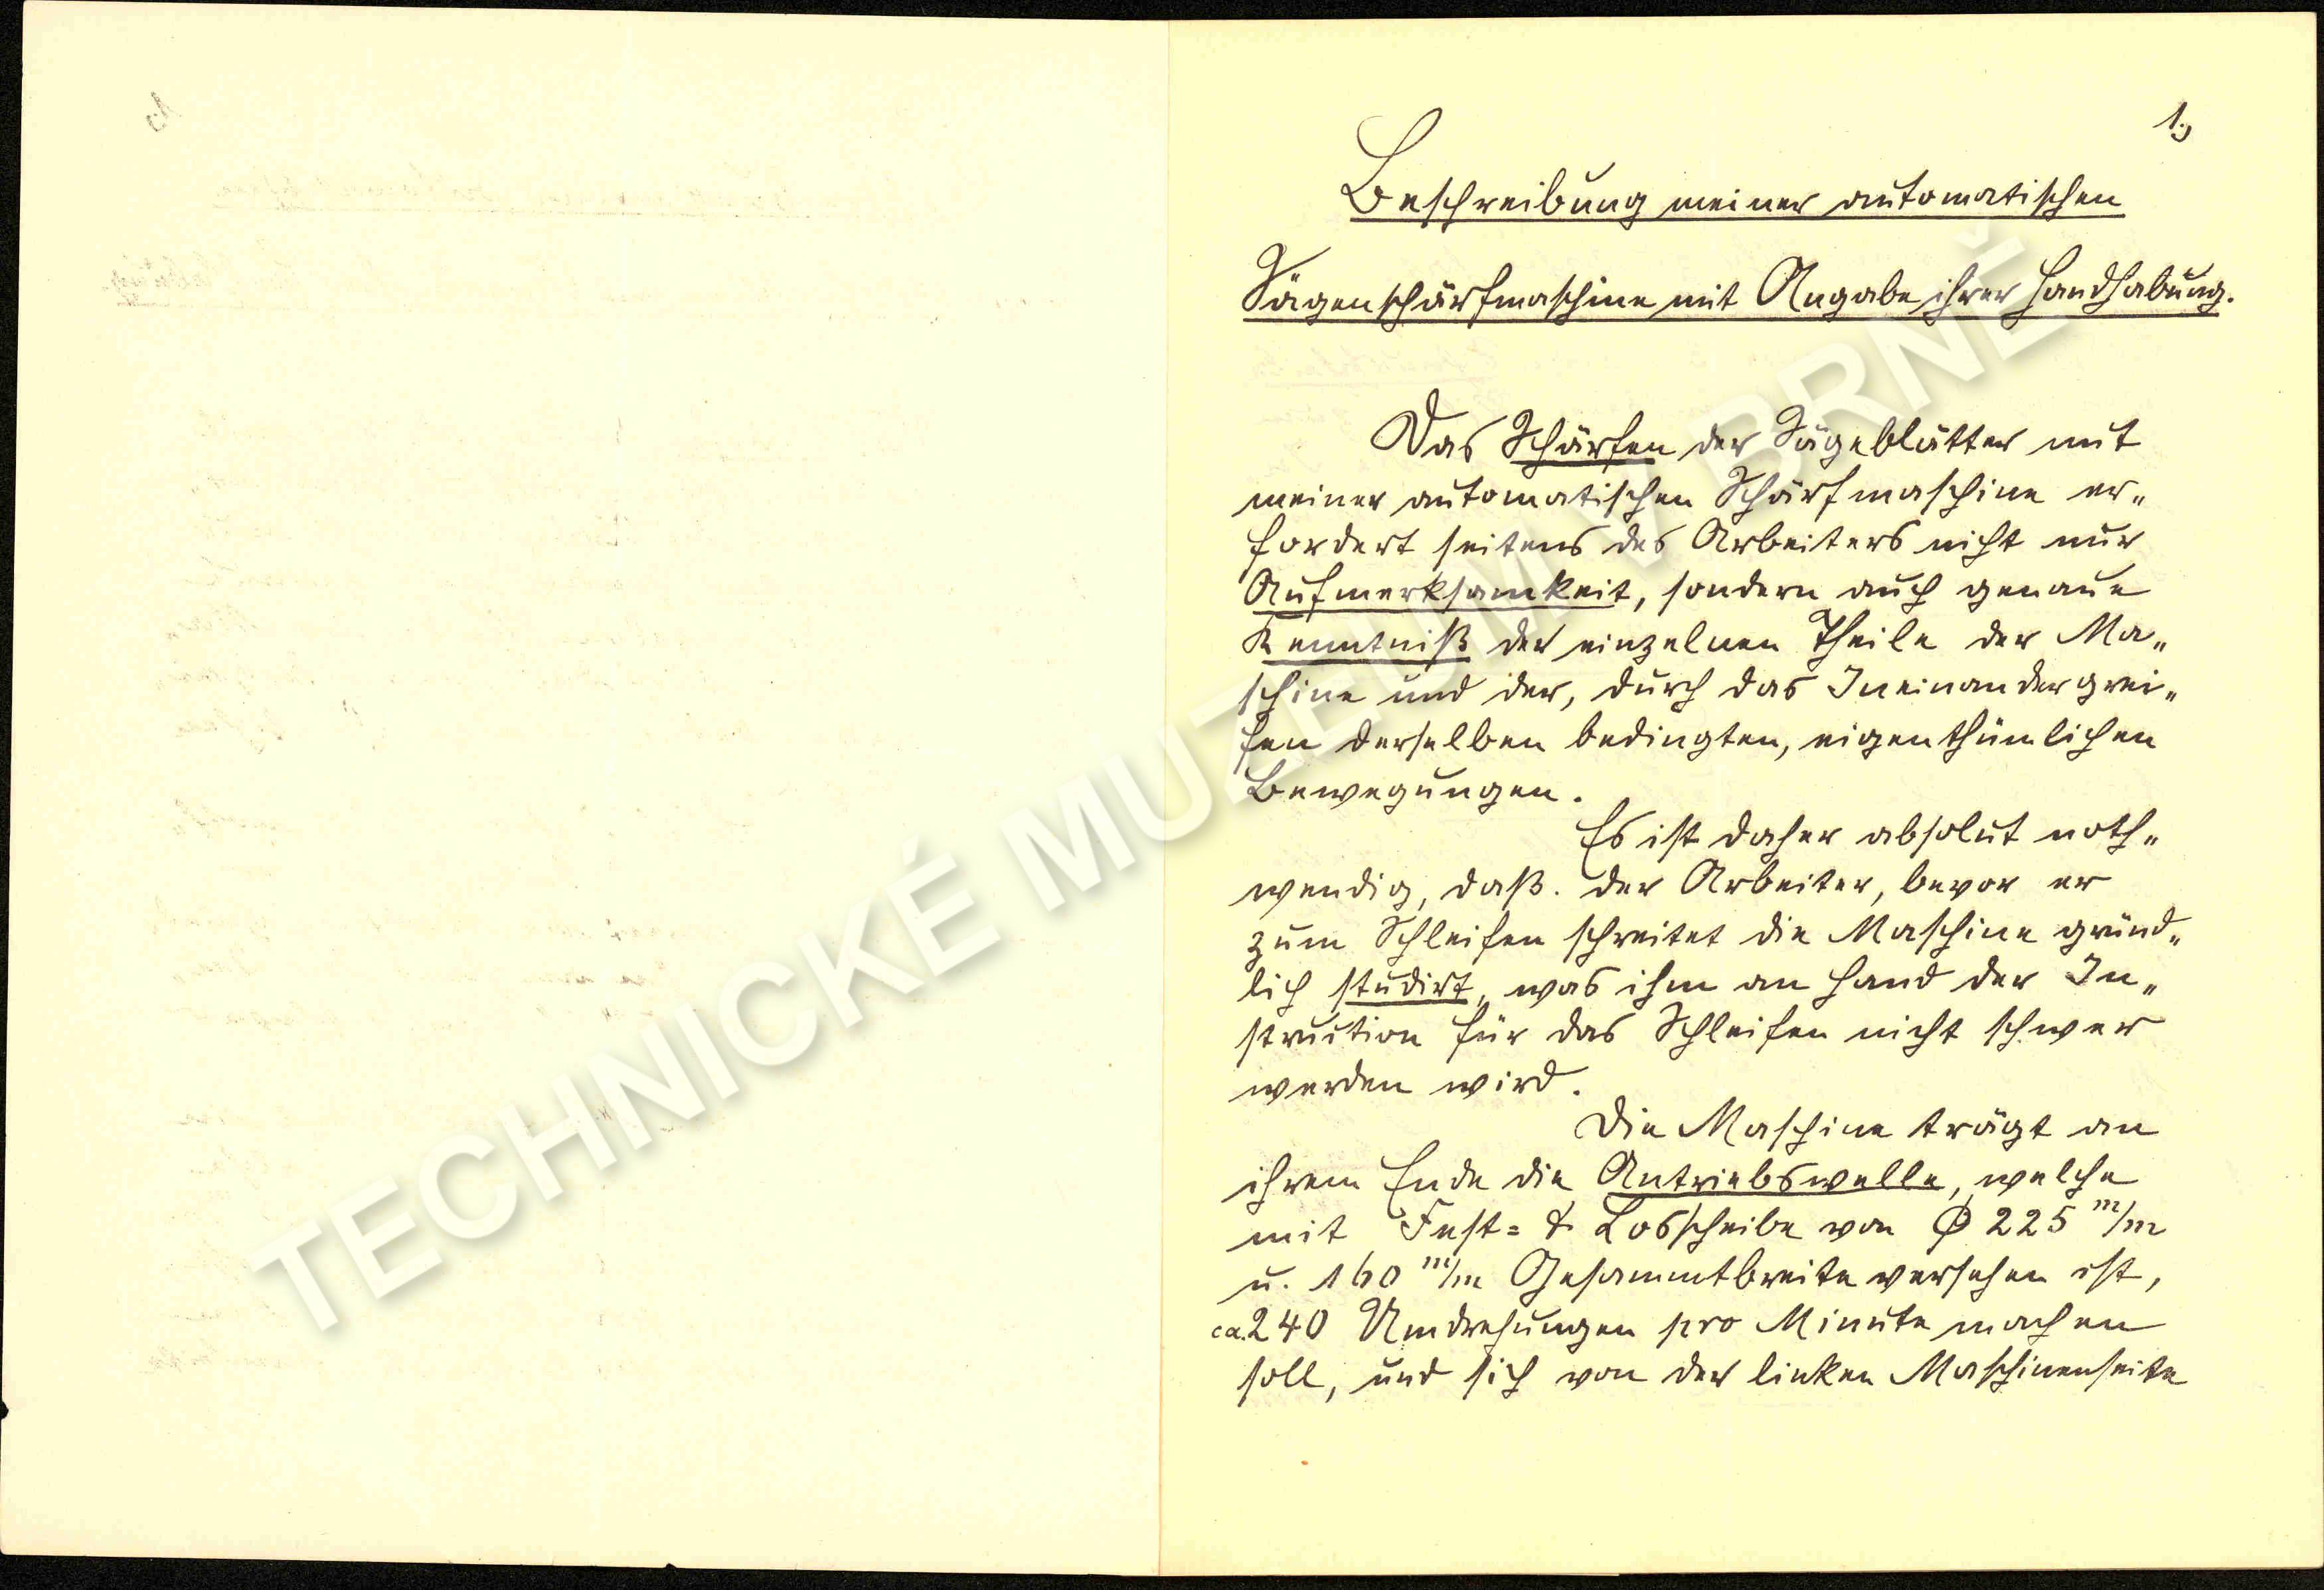 1.)
Beschreibung meiner automatischen
Sägenschärfmaschine mit Angabe ihrer Handhabung.
Das Schärfen der Sägeblätter mit
meiner automatischen Schärfmaschine er„
fordert seitens des Arbeiters nicht nur
Aufmerksamkeit, sondern auch genaue
Kenntniß der einzelnen Theile der Ma„
schine und der, durch das Ineinandergrei„
fen derselben bedingten, eigenthümlichen
Bewegungen.
Es ist daher absolut noth„
wendig, daß der Arbeiter, bevor er
zum Schleifen schreitet die Maschine gründ„
lich studirt, was ihm an Hand der In„
struction für das Schleifen nicht schwer
werden wird.
Die Maschine trägt an
ihrem Ende die Antriebswelle, welche
mit Fest= & Losscheibe von Ø 225 m/m
u. 160 m/m Gesammtbreite versehen ist,
ca. 240 Umdrehungen pro Minute machen
soll, und sich von der linken Maschinenseite
TECHNICKÉ MUZEUM V BRNĚ